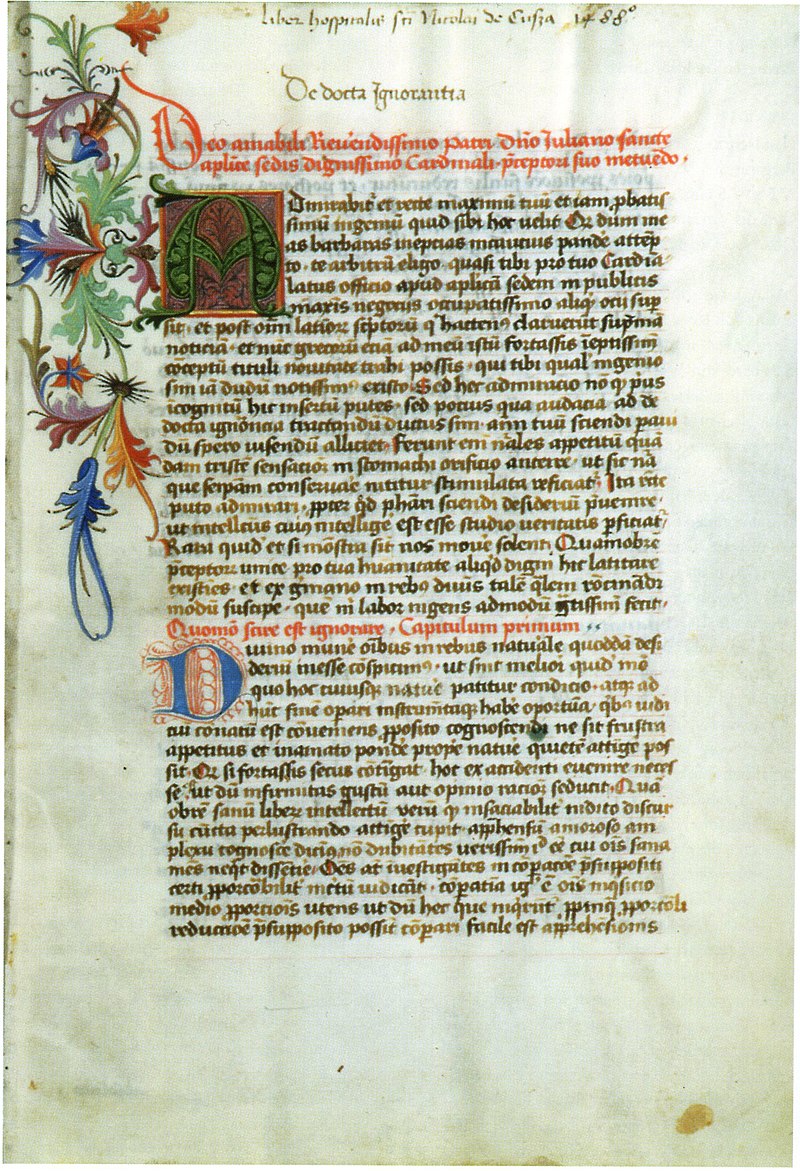 liber hospitalis sti Nicolai de Cusza 1488°
De docta Ignorantia
Deo amabili Reverendissimo Patri dño Iuliano sancte
aplice sedis dignissimo Cardinali p̄ceptori suo metuēdo
Admirabit et recte maximū tuū et iam pbatis
simū ingeniū quid sibi hoc velit Qr dum me
as barbaras ineptias incautius pande attēp
to te arbitrū eligo quasi tibi pro tuo Cardīa
latus officio apud aplicā sedem in publicis
maxīs negociis occupatissimo aliqd ocii sup
sit et post oīm latinor scptorū q hacteng claruerūt supma
noticiā et nūc grecorū eciā ad meū istū fortassis īeptissim
cōceptū tituli novitate trahi possis qui tibi qual ingenio
sim iā dudū notissim existo Sed hec admiracio no q pus
īcognitū hic insertū putes sed pocius qua audacia ad de
docta ignōncia tractandū ductus sim aīm tuū sciendi
dū spero visendū alliciet Ferunt em nāles appetitū quā
dam tristē sensacioē in stomachi orificio anteire ut sic nā
que seipam conservare nititur stimulata reficiat Ita recte
puto admirari ppter qd phāri sciendi desideriū pvenire
ut intellectus cuius intellige est esse studio veritatis pficiat
Rara quid et si mōstra sit nos move solent Quamobrē
pceptor unice pro tua huanitate aliqd digni hic latitare
existies et ex gmano in rebus divīs talē qlem rocinādi
modū suscipe quē m labor ingens admodū gtissim fecit
Quomō scire est ignorare Capitulum primum
Divino mune oībus in rebus naturale quoddā desi
deriū inesse cōspicimus ut sint meliori quid mō
quo hoc cuiusq nature patitur condicio atq ad
hūc finē opari instrumtaq habe oportūa qbus iudi
ciū cōnatū est cōveniens pposito cognoscendi ne sit frustra
appetitus et in amato ponde prope nature quietē attige pos
sit Qr si fortassis secus cōtīgat hoc ex accidenti evenire neces
se ut dū infirmitas gustū aut opinio racioē seducit Quā
obrē sanū liberū intellectū verū qd insaciabilit īndito discur
su cūcta perlustrando attige cupit apphensū amoroso am
plexu cognosce dicim nō dubitātes verissim id cē cui oīs sana
mēs neqt dissentire Oēs at īvestigātes in cōpacōe psuppositi
certi pporcōbilit incertū iudicāt cōparatia igr ē oīs inqsicio
medio pporcionis utens ut dū hec que inqrunt ppinq pporcōli
reductiōe psupposito possit cōpari facile est apprehēsionis